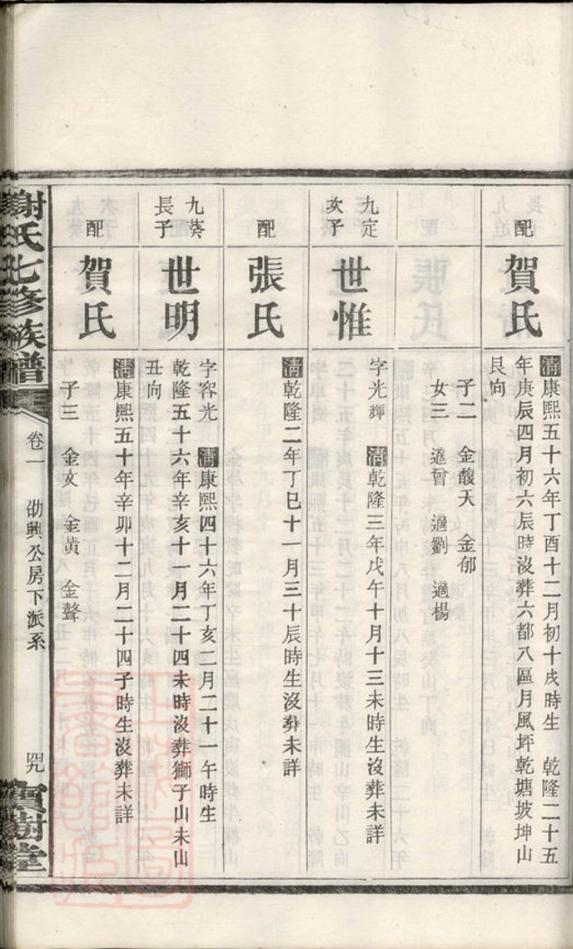 配
賀氏
清康熙五十六年丁酉十二月初十戌時生 乾隆二十五
年庚辰四月初六辰時沒葬六都八區月風坪乾塘坡坤山
艮向
子二 金馥天 金郁
女三 適曾 適劉 適楊
九定
次子
世惟
字光輝 清乾隆三年戊午十月十三未時生沒葬未詳
配
張氏
清乾隆二年丁巳十一月三十辰時生沒葬未詳
九葵
長子
世明
字容光 清康熙四十六年丁亥二月二十一午時生
乾隆五十六年辛亥十一月二十四未時沒葬獅子山未山
丑向
配
賀氏
清康熙五十年辛卯十二月二十四子時生沒葬未詳
子三 金文 金黃 金聲
謝氏七修族譜
卷一 劭興公房下派系
四九
寶樹堂